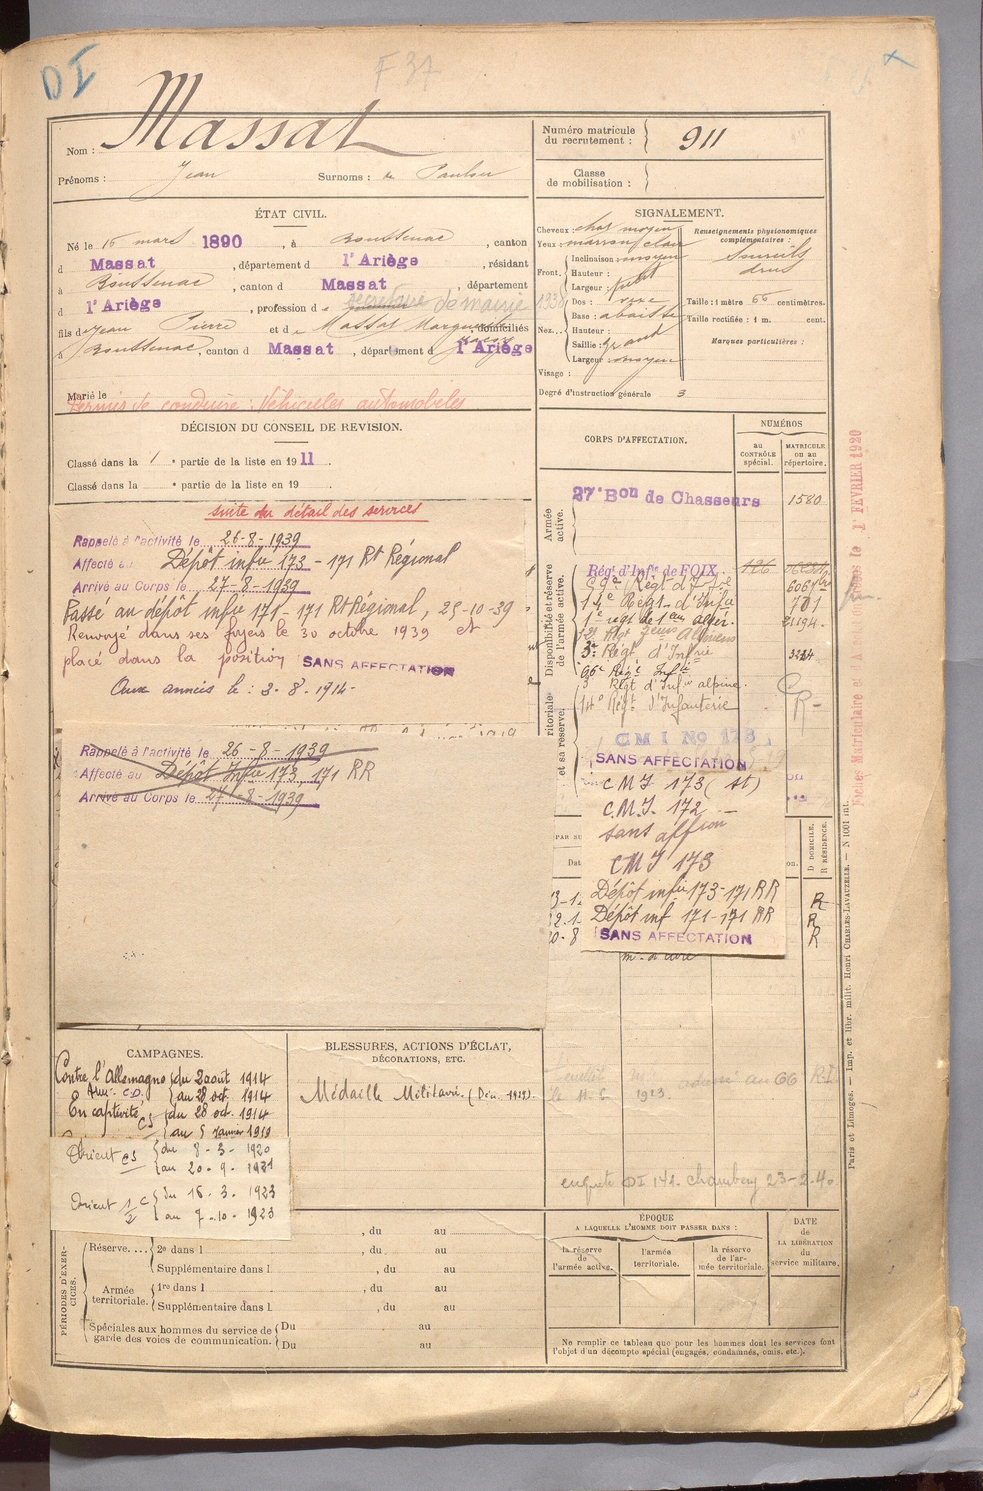 DI
F 37
Nom : Massat
Prénoms : Jean Surnoms :
Numéro matricule du recrutement : 911
Classe de mobilisation :
ÉTAT CIVIL.
Né le 16 mars 1890, à Boussenac, canton
d Massat, département d l'Ariège, résidant
à Boussenac, canton d Massat, département
d l'Ariège, profession de secrétaire de mairie 1938
fils de Jean Pierre et de Massat Marguerite, domiciliés
à Boussenac, canton d Massat, département d l'Ariège
Marié le
Permis de conduire : Véhicules automobiles
SIGNALEMENT.
Cheveux : chat. moyen
Yeux : marron clair
Front, Inclinaison : moyen
Hauteur : petit
Largeur :
Nez... Dos :
Base : abaissée
Hauteur :
Saillie : grand
Largeur : moyen
Visage :
Renseignements physionomiques complémentaires :
Sourcils
drus
Taille : 1 mètre 66 centimètres.
Taille rectifiée : 1 m. cent.
Marques particulières :
Degré d'instruction générale 3
DÉCISION DU CONSEIL DE REVISION.
Classé dans la 1 e partie de la liste en 1911.
Classé dans la e partie de la liste en 19
CORPS D'AFFECTATION.
NUMÉROS
au CONTRÔLE spécial.
MATRICULE ou au répertoire.
Armée active.
27e Bon de Chasseurs 1580
Disponibilité et réserve de l'armée active.
Régt d'Infie de FOIX 126
59e Régt d'Infie
14e Régt d'Infie 701
1e régt de 21194
3e Régt d'Infie
96e Régt Infie
3e Régt d'Infie alpine.
14e Régt d'Infanterie
ritoriale et sa réserve.
CMI No 173
SANS AFFECTATION
CMI 173 (st)
C.M.I. 172
sans affion
CMI 173
Dépôt infie 173-171 RR
Dépôt inf 171-171 RR
SANS AFFECTATION
suite du détail des services
Rappelé à l'activité le 26-8-1939
Affecté au Dépôt infie 173 - 171 Rt Régional
Arrivé au Corps le 27-8-1939
Passé au dépôt infie 171-171 Rt Régional, 25-10-39
Renvoyé dans ses foyers le 30 octobre 1939 et
placé dans la position SANS AFFECTATION
Aux armées le : 3-8-1914-
Rappelé à l'activité le 26-8-1939
Affecté au Dépôt Infie 173, 171 RR
Arrivé au Corps le 27-8-1939
D DOMICILE, R RÉSIDENCE.
R
R
R
CAMPAGNES.
Contre l'Allemagne du 2 août 1914
au 28 oct. 1914
En captivité du 28 oct. 1914
au 5 Janvier 1919
Orient CS du 8-3-1920
au 20-9-1921
Orient 1/2 C du 16-3-1923
au 7-10-1923
BLESSURES, ACTIONS D'ÉCLAT,
DÉCORATIONS, ETC.
Médaille Militaire.
adressé au 66 R.I
1923.
enquête DI 141. Chambery 23-2-40
PÉRIODES D'EXERCICES.
, du au
Réserve.... 2e dans l , du au
Supplémentaire dans l , du au
Armée territoriale. 1re dans l , du au
Supplémentaire dans l , du au
Spéciales aux hommes du service de garde des voies de communication. Du au
Du au
ÉPOQUE
A LAQUELLE L'HOMME DOIT PASSER DANS :
la réserve de l'armée active.
l'armée territoriale.
la réserve de l'armée territoriale.
DATE de LA LIBÉRATION du service militaire.
Ne remplir ce tableau que pour les hommes dont les services font
l'objet d'un décompte spécial (engagés, condamnés, omis. etc.).
Paris et Limoges. — Imp. et libr. milit. Henri CHARLES-LAVAUZELLE. — N 1001 int.
1er FEVRIER 1920